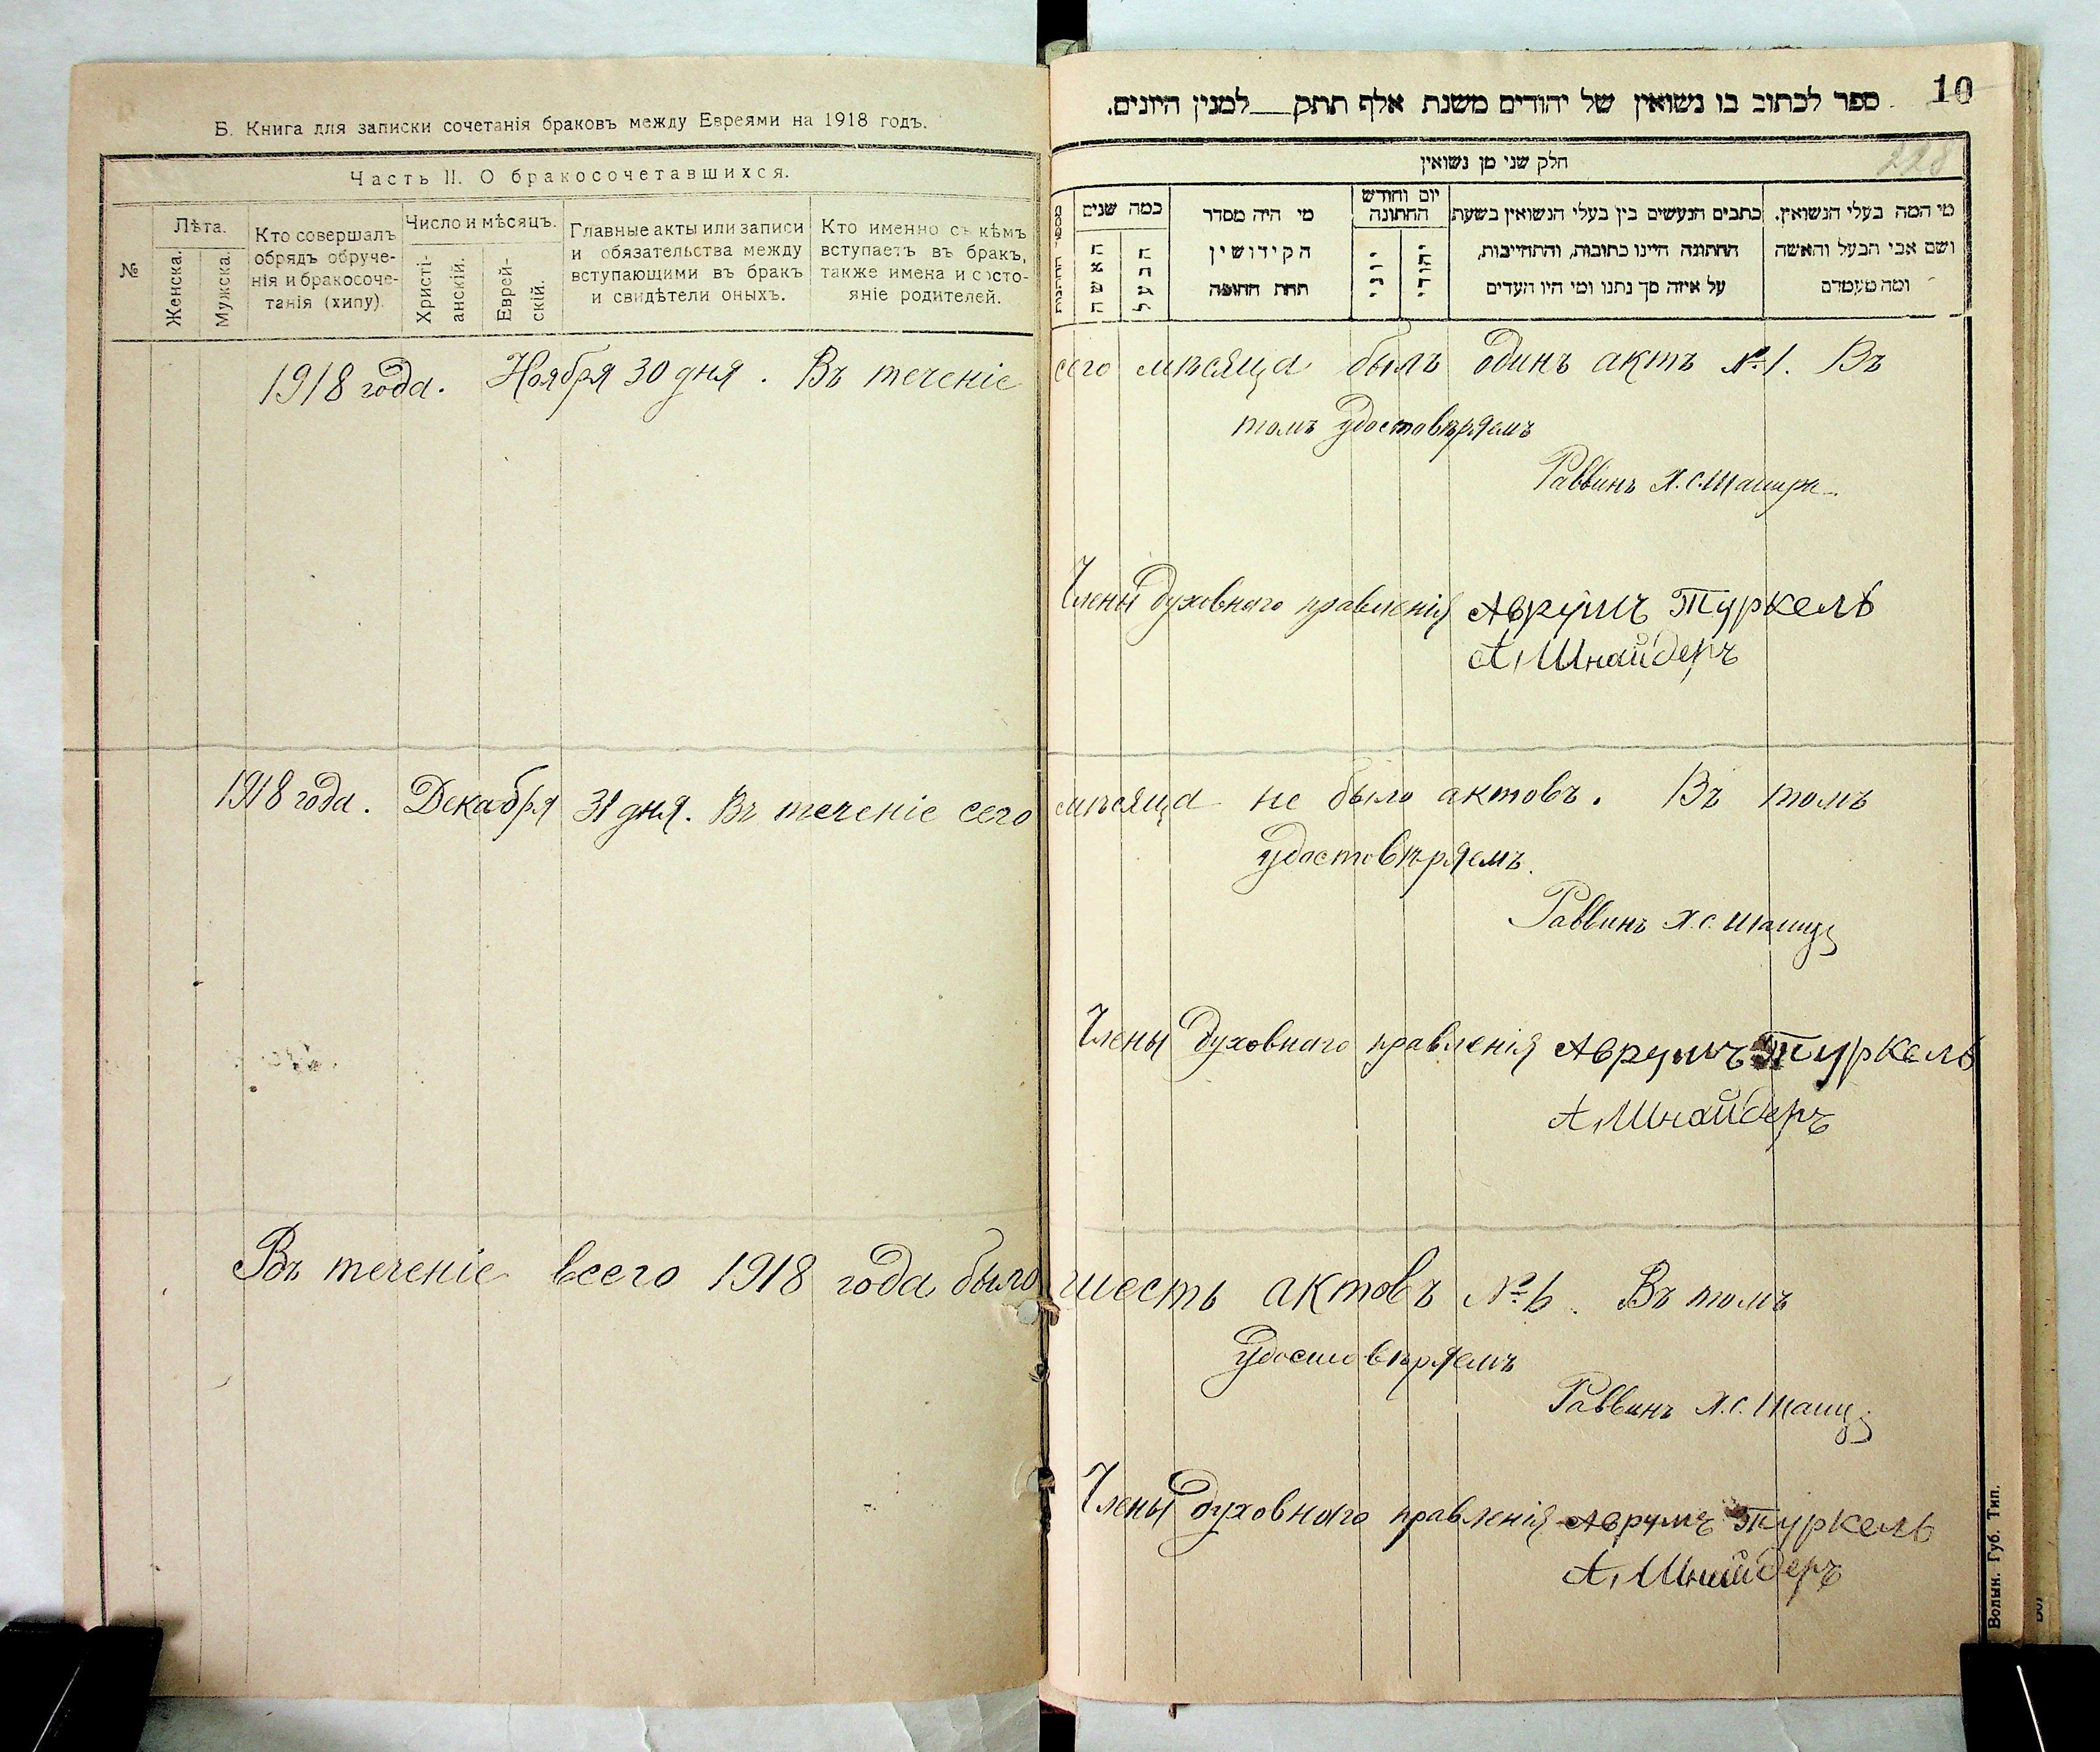 Б. Книга для записки сочетанія браковъ между Евреями на 1918 годъ.
Часть II. О бракосочетавшихся.
№
Лѣта.
Женска.
Мужска.
Кто совершалъ
обрядъ обруче-
нія и бракосоче-
танія (хипу)
Число и мѣсяцъ.
Христі-
анскій.
Еврей-
скій.
Главные акты или записи
и обязательства между
вступающими въ бракъ
и свидѣтели оныхъ.
Кто именно съ кѣмъ
вступаетъ въ бракъ,
также имена и состо-
яніе родителей.
10
ספר לכתוב בו נשואין של יהודים משנת אלף תתק___למנין היונים.
חלק שני מן נשואין
228
כמה שנים
האשה
הבעל
מי היה מסדר
הקידושין
תחת החופה
יום וחודש
החתונה
יוני
יהודי
כתבים הנעשים בין בעלי הנשואין בשעת
החתונה היינו כתובות, והתחייבות,
על איזה סך נתנו ומי היו העדים
מי המה בעלי הנשואין.
ושם אבי הבעל והאשה
ומה מעמדם
1918 года. Ноября 30 дня. Въ теченіе сего мѣсяца былъ одинъ актъ №1. Въ
томъ удостовѣряемъ
Раввинъ Я.С. Шапира
Члены духовнаго правленія Аврумъ Туркель
А. Шнайдеръ
1918 года. Декабря 31 дня. Въ теченіе сего мѣсяца не было актовъ. Въ томъ
удостовѣряемъ.
Раввинъ
Члены духовнаго правленія Аврумъ Туркель
А. Шнайдеръ
Въ теченіе всего 1918 года было шесть актовъ №6. Въ томъ
удостовѣряемъ
Раввинъ
Члены духовнаго правленія Аврумъ Туркель
А. Шнайдеръ
Волын. Губ. Тип.